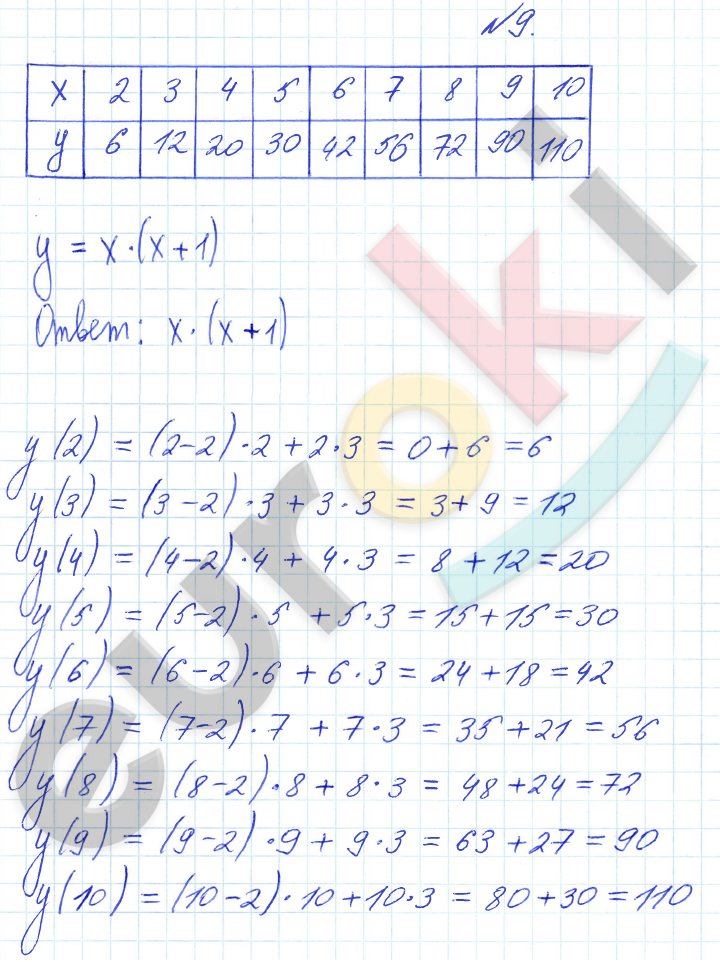 №9.
x 2 3 4 5 6 7 8 9 10
y 6 12 20 30 42 56 72 90 110
y = x·(x+1)
Ответ: x·(x+1)
y(2) = (2-2)·2+2·3 = 0+6 =6
y(3) = (3-2)·3+3·3 = 3+9 =12
y(4) = (4-2)·4+4·3 = 8+12=20
y(5) = (5-2)·5+5·3=15+15=30
y(6) = (6-2)·6+6·3= 24+18=42
y(7) = (7-2)·7+7·3 = 35+21=56
y(8) = (8-2)·8+8·3 = 48+24=72
y(9) = (9-2)·9+9·3 = 63+27=90
y(10) = (10-2)·10+10·3 = 80+30=110
euroki